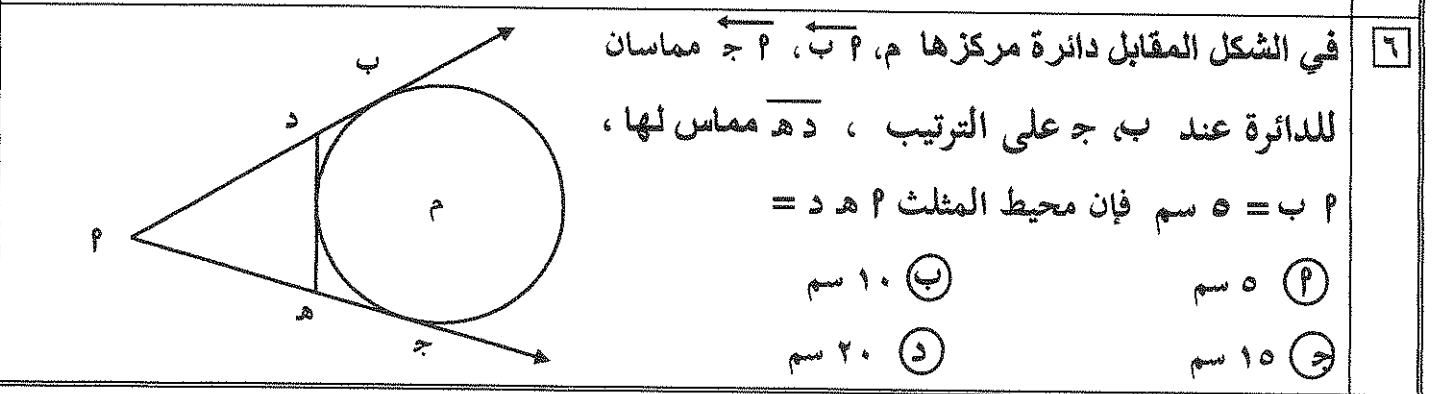 ٦
في الشكل المقابل دائرة مركزها م، أ ب، أ ج مماسان
للدائرة عند ب، ج على الترتيب ، د هـ مماس لها ،
أ ب = ٥ سم فإن محيط المثلث أ هـ د =
أ ٥ سم
ب ١٠ سم
ج ١٥ سم
د ٢٠ سم
ب
د
م
أ
هـ
ج